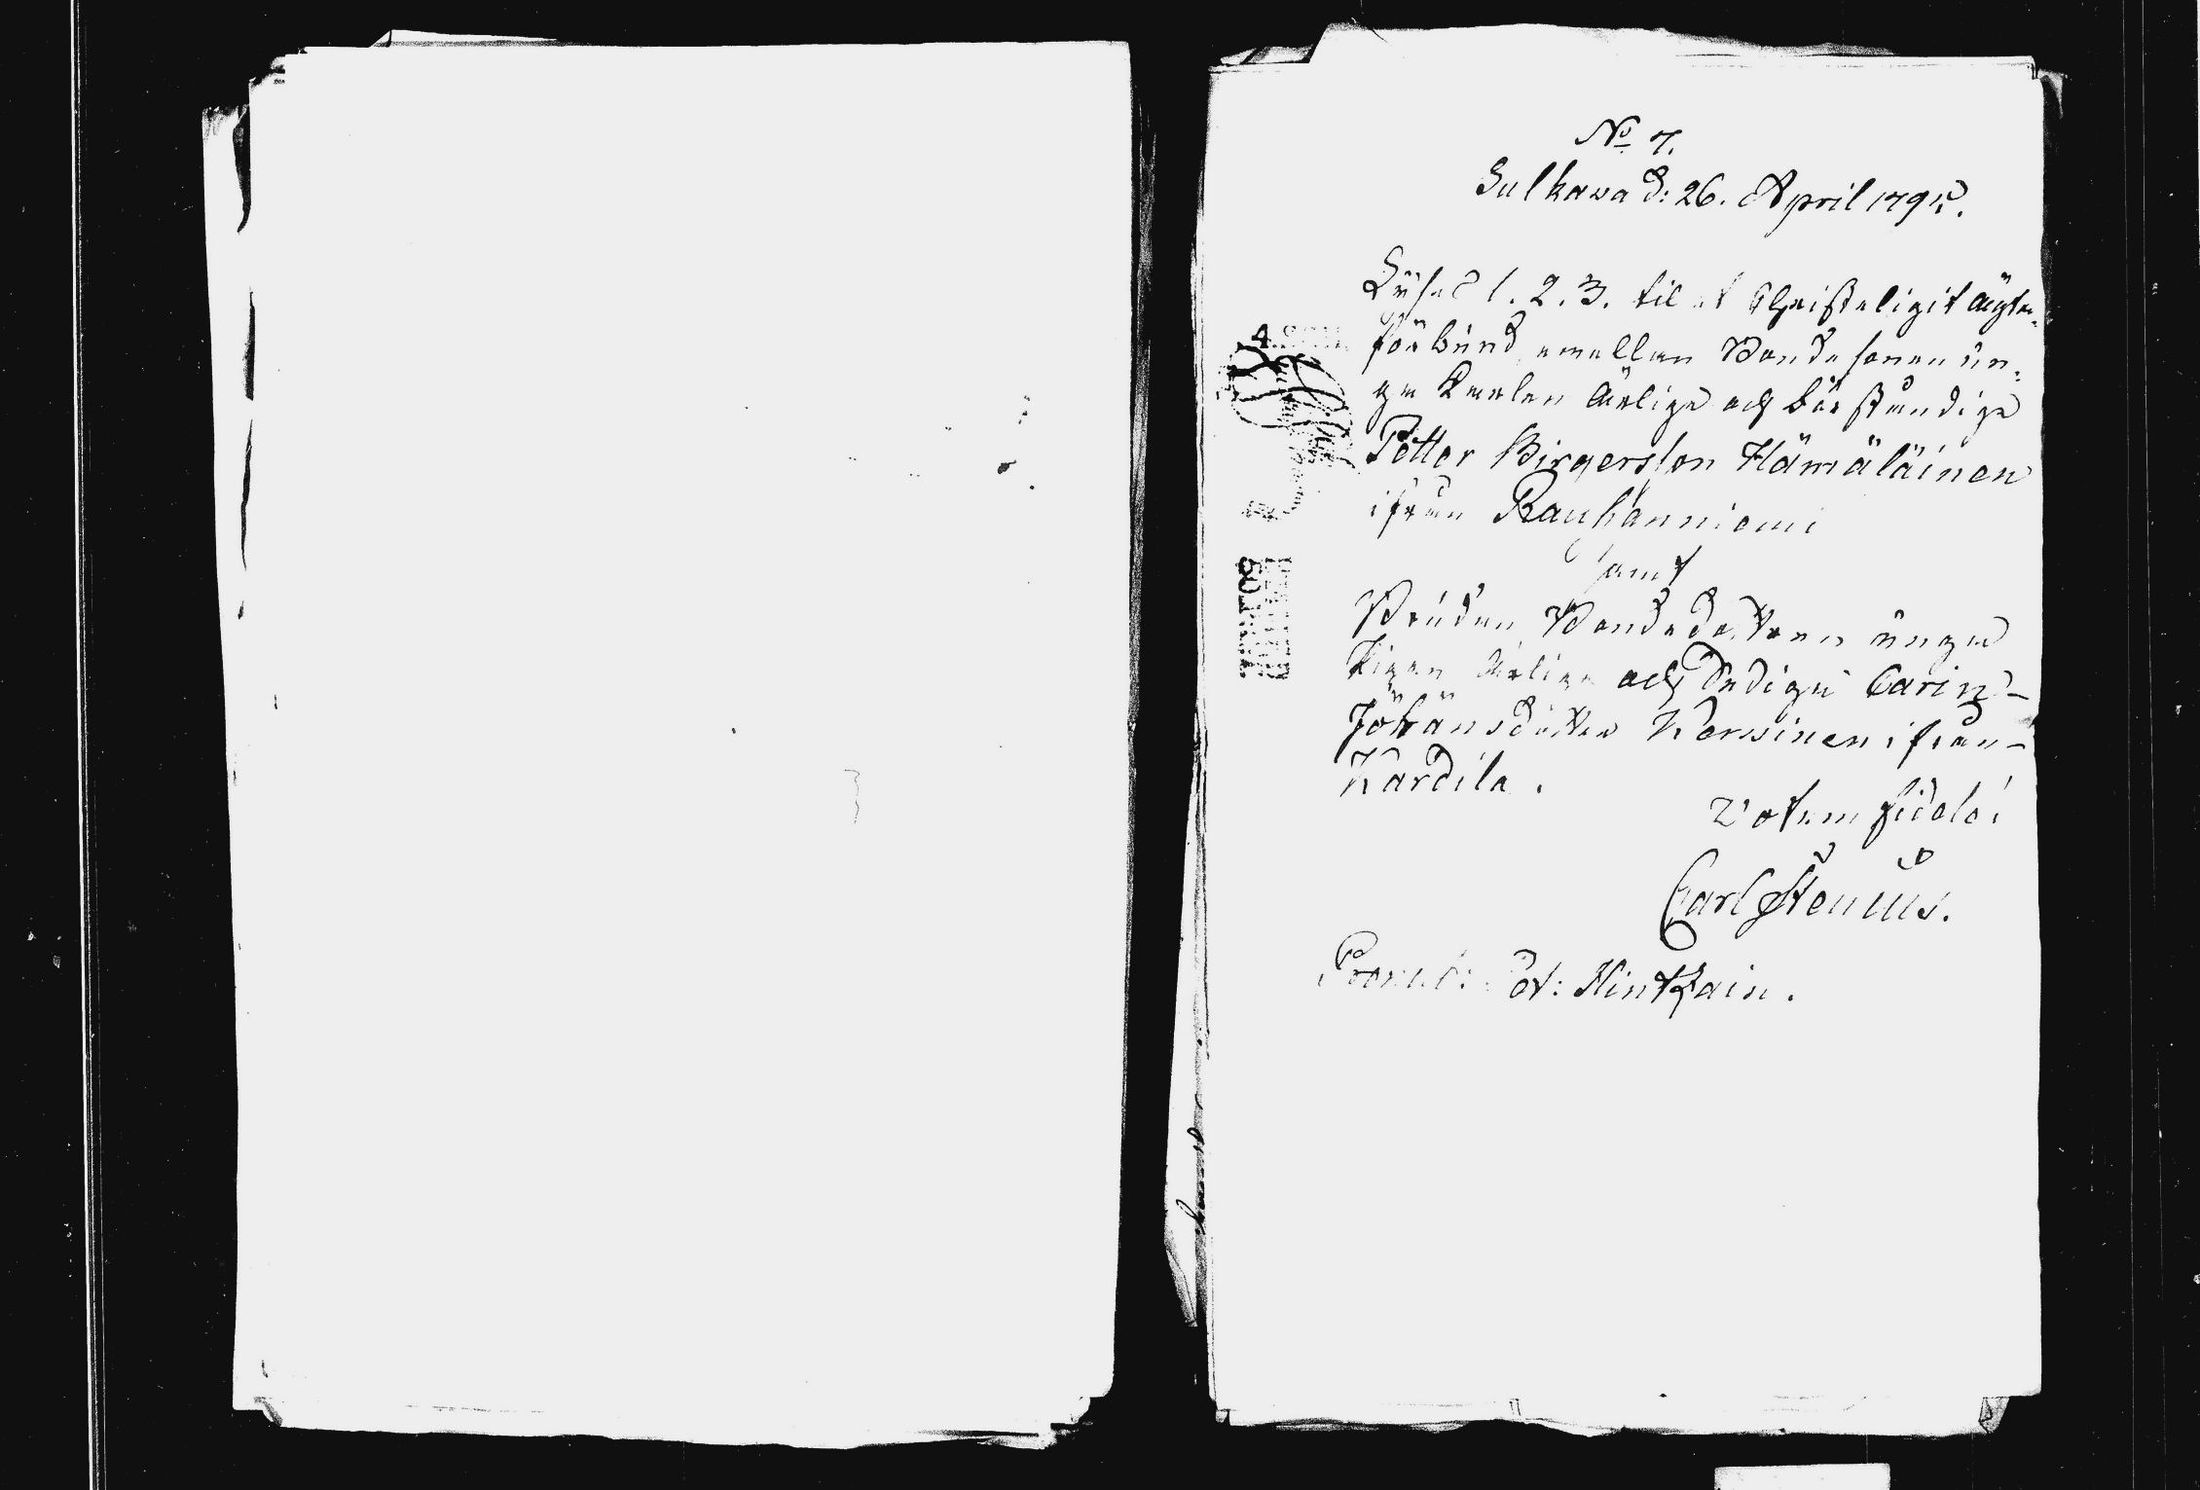 No 7.
Sulkawa d: 26. April 1795.
Lyses 1. 2. 3. til et Christeligit ägta-
förbund emellan Bonde sonen un-
ga Karlen ärlige och
Petter Birgersson Hämäläinen
ifrån Rauhanniemi
samt
Bruden Bondedottren unga
Pigan ärliga och Dydiga Carin
Johansdotter Kerwinen ifrån
Kardila.
Votum fidele!
Carl Stenius.
Pet: Hintzain.